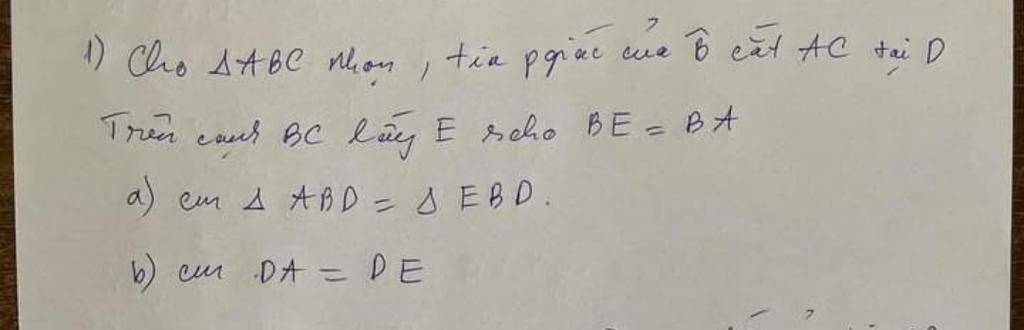 1) Cho ΔABC nhọn, tia pgiác của B̂ cắt AC tại D
Trên cạnh BC lấy E scho BE = BA
a) cm Δ ABD = Δ EBD.
b) cm DA = DE